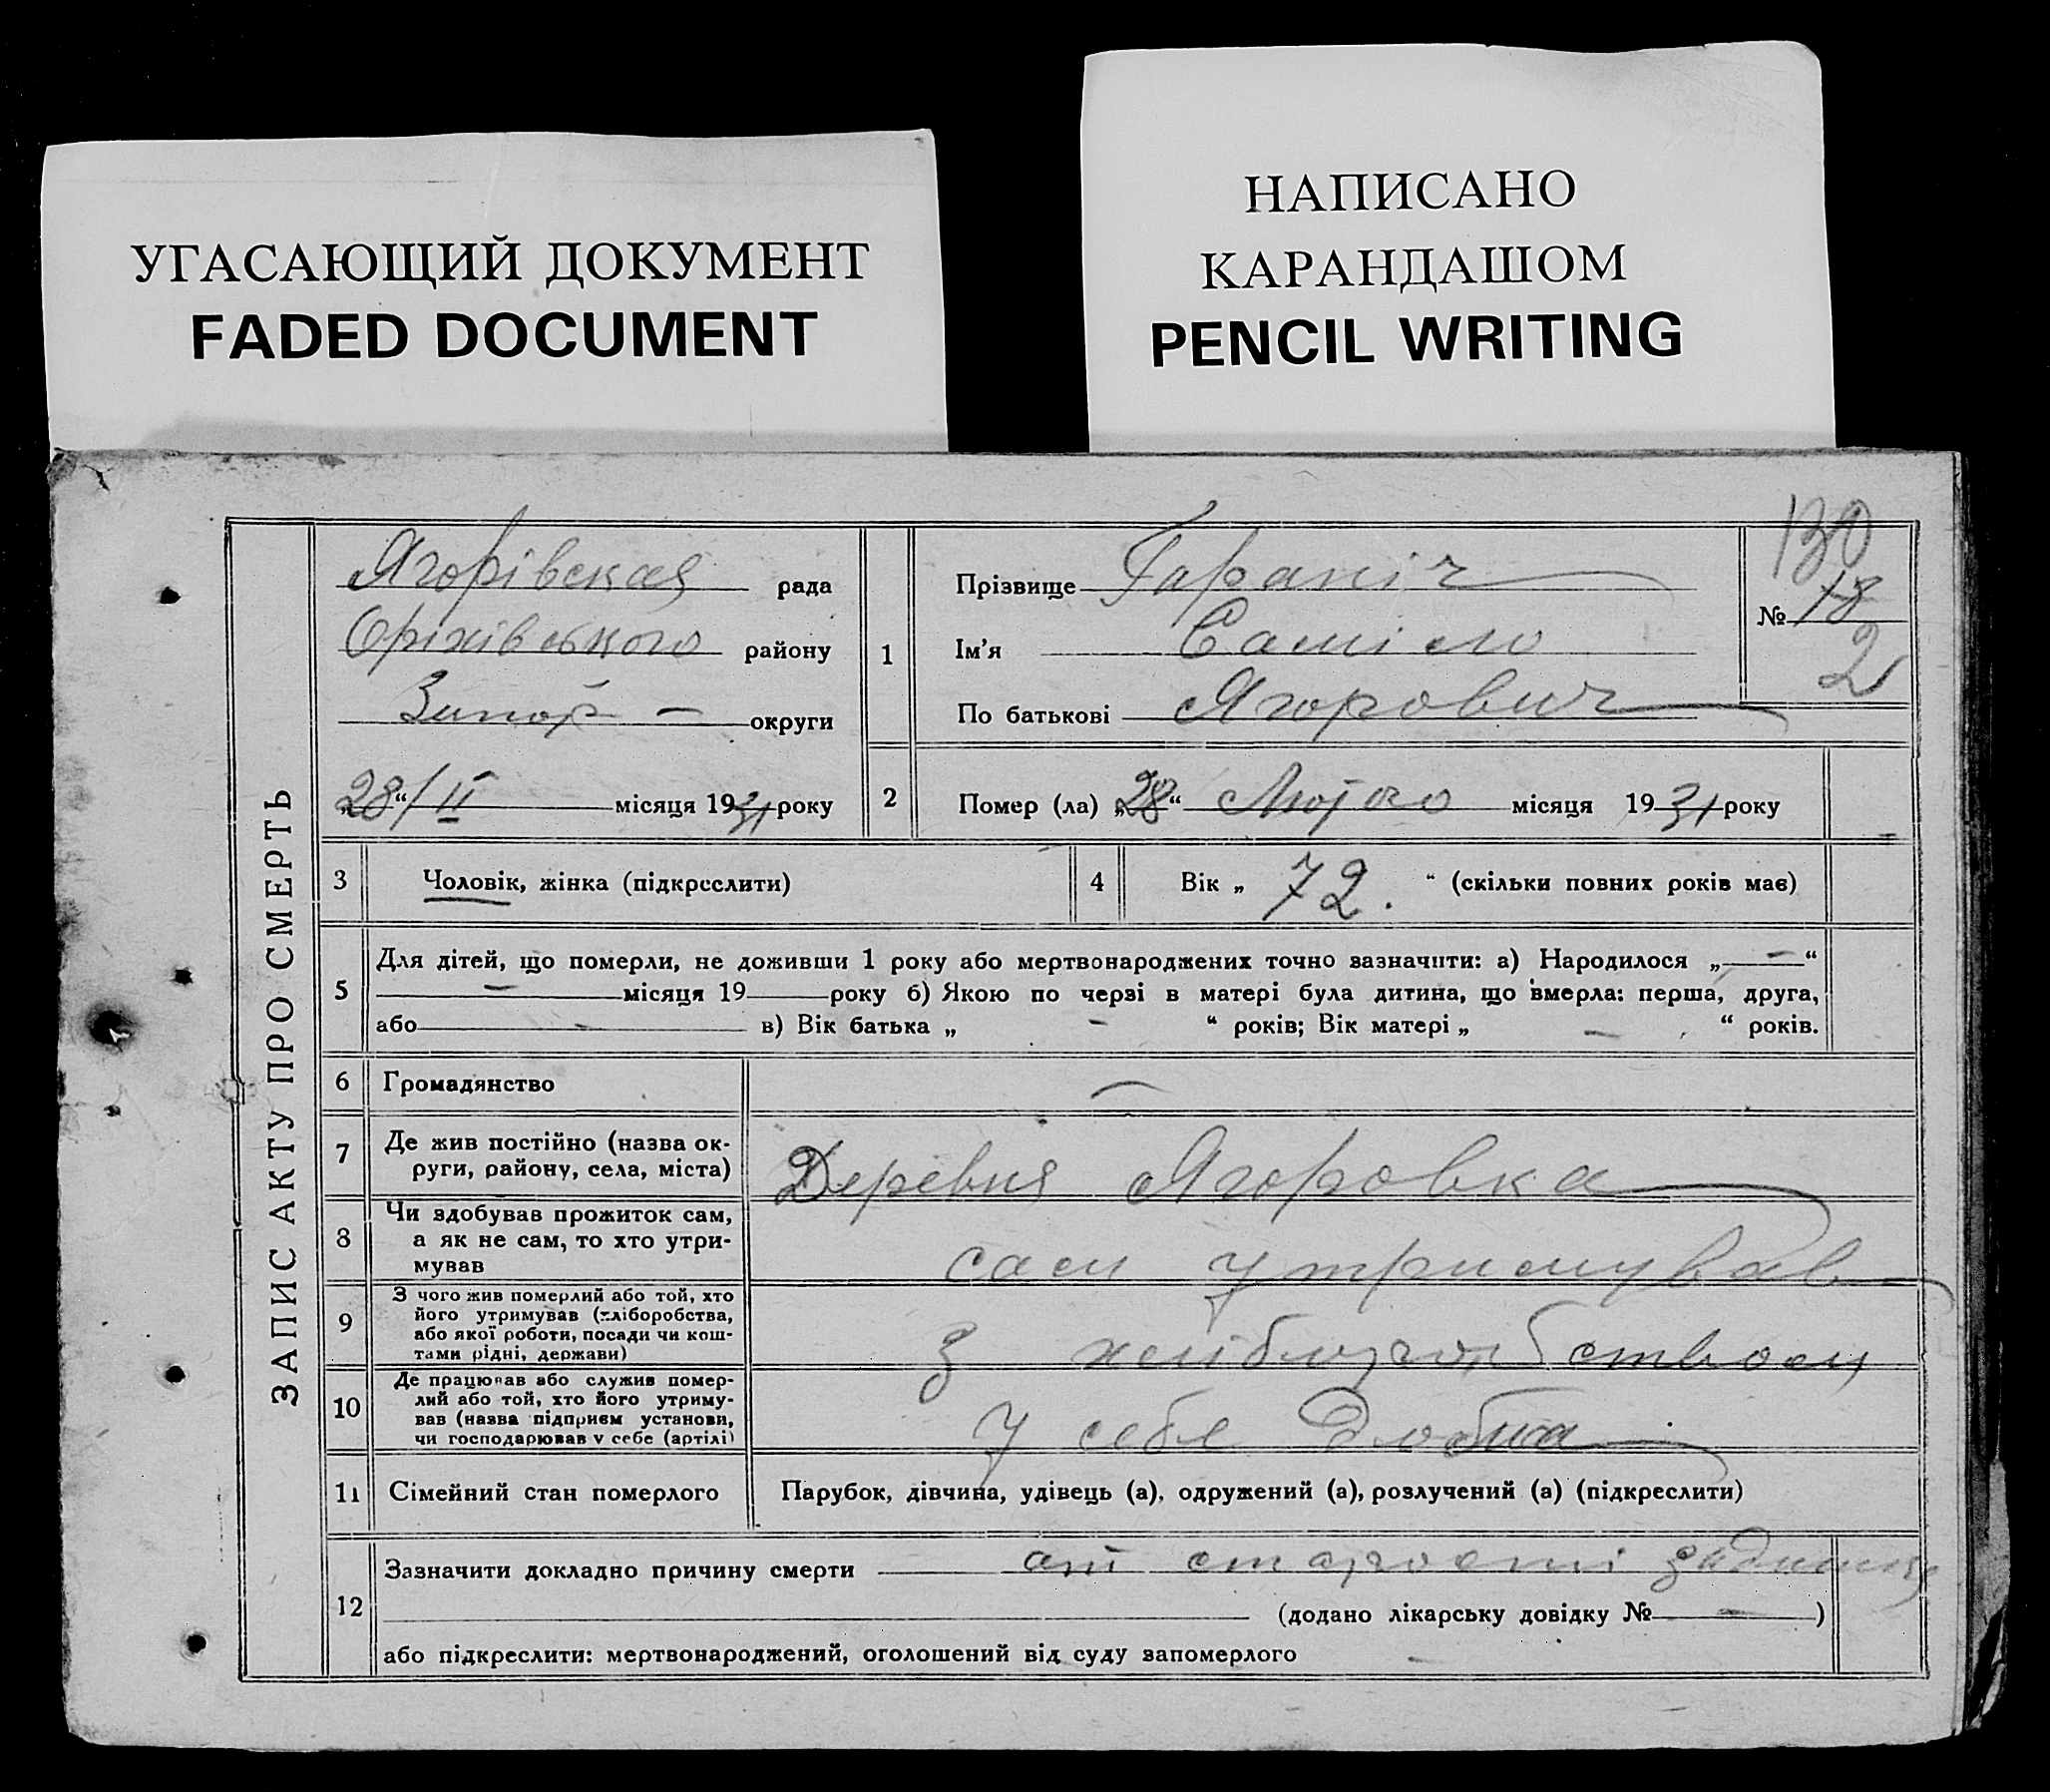 УГАСАЮЩИЙ ДОКУМЕНТ
FADED DOCUMENT
НАПИСАНО
КАРАНДАШОМ
PENCIL WRITING
ЗАПИС АКТУ ПРО СМЕРТЬ
Ягорівская рада
Оріхівського району
Запор – округи
„28“/II місяця 1931 року
130
№ 18
2
1 Прізвище Гараніч
Ім'я Самійло
По батькові Ягорович
2 Помер (ла) „28“ Лютого місяця 1931 року
3 Чоловік, жінка (підкреслити)
4 Вік „ 72. “ (скільки повних років має)
5 Для дітей, що померли, не доживши 1 року або мертвонароджених точно зазначити: а) Народилося „ – “
– місяця 19 року б) Якою по черзі в матері була дитина, що вмерла: перша, друга,
або – в) Вік батька „ – “ років; Вік матері „ – “ років.
6 Громадянство –
7 Де жив постійно (назва ок-
руги, району, села, міста)
Деревня Ягоровка
8 Чи здобував прожиток сам,
а як не сам, то хто утри-
мував
сам утримував
9 З чого жив померлий або той, хто
його утримував (хліборобства,
або якої роботи, посади чи кош-
тами рідні, держави)
З
10 Де працював або служив помер-
лий або той, хто його утриму-
вав (назва підприєм установи,
чи господарював у себе (артілі)
У себе
11 Сімейний стан померлого Парубок, дівчина, удівець (а), одружений (а), розлучений (а) (підкреслити)
12 Зазначити докладно причину смерти от старості
(додано лікарську довідку № – )
або підкреслити: мертвонароджений, оголошений від суду запомерлого –